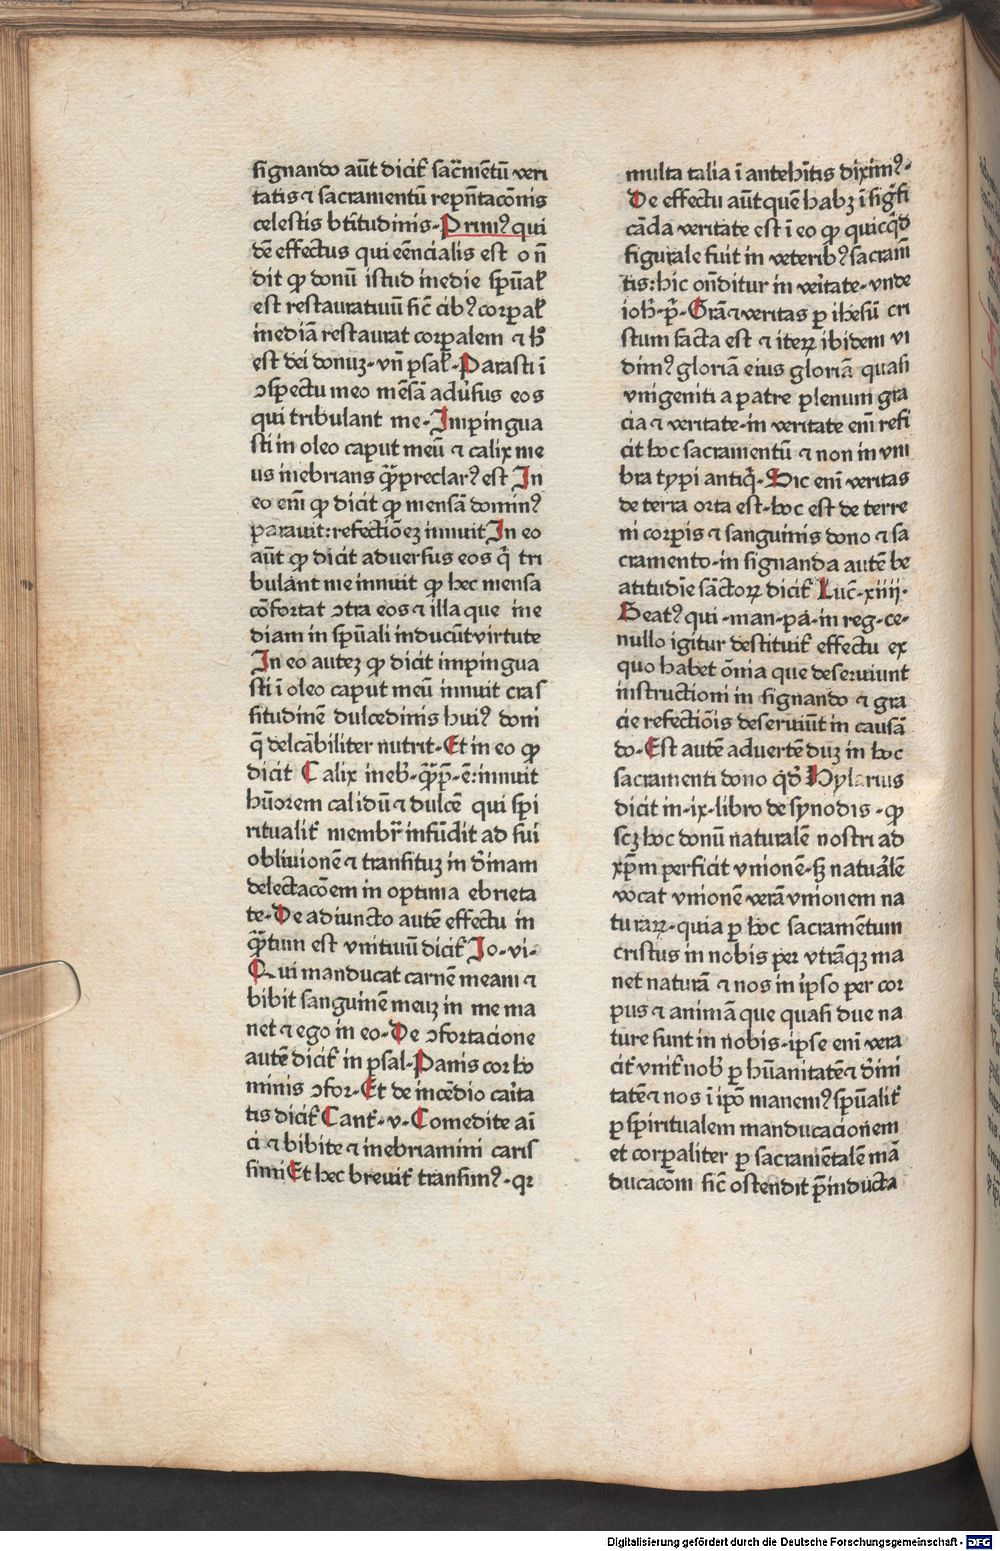 signando aūt dicit᷑ sac̄mētū veri
tatis ⁊ sacramentū rep̄ntacōnis
celestis btītudinis. Primꝰ qui
dē effectus qui eēncialis est on̄
dit ꝙ donū istud inedie sp̄ual̓
est restauratiuū sic̄ cibꝰ corꝑal̓
inediā restaurat corꝑalem ⁊ hͦ
est dei donuꝫ. vn̄ psal̓. Parasti ī
ↄspectu meo mēsā adūsus eos
qui tribulant me. Impingua
sti in oleo caput meū ⁊ calix me
us inebrians q̄ꝫ preclarꝰ est In
eo eni̅ ꝙ dicit ꝙ mensā dominꝰ
parauit: refectiōeꝫ innuit In eo
aūt ꝙ dicit aduersus eos q̄ tri
bulant me innuit ꝙ hec mensa
cōfortat ↄtra eos ⁊ illa que ine
diam in sp̄uali inducūt virtute
In eo auteꝫ ꝙ dicit impingua
sti ī oleo caput meū innuit cras
situdinē dulcedinis huiꝰ doni
q̄ delcābiliter nutrit. Et in eo ꝙ
dicit Calix ineb̓. q̄ꝫ p̄. ē: innuit
hūorem calidū ⁊ dulcē qui spi
ritualit᷑ membr̓ infūdit ad sui
obliuionē ⁊ transituꝫ in diuinam
delectacōem in optima ebrieta
te. De adiuncto autē effectu in
q̄ꝫtum est vnituū dicit᷑ Jo. vi.
Qui manducat carnē meam ⁊
bibit sanguinē meuꝫ in me ma
net ⁊ ego in eo. De ↄfortacione
autē dicit᷑ in psal. Panis cor ho
minis ↄfor. Et de incēdio carita
tis dicit᷑ Cant᷑. v. Comedite ami
ci ⁊ bibite ⁊ inebriamini caris
simi Et hec breuit᷑ transimꝰ. qꝛ
multa talia ī antehītis diximꝰ.
De effectu aūt quē habꝫ ī sig̓fi
cāda veritate est ī eo ꝙ quicq̓d
figurale fuit in veteribꝰ sacram̄
tis: hic on̄ditur in veritate. vnde
ioh̓. p̄. Grā ⁊ veritas ꝑ ihesū cri
stum facta est ⁊ iteꝝ ibidem vi
dimꝰ gloriā eius gloriā quasi
vnigeniti a patre plenum gra
cia ⁊ veritate. in veritate eni̅ refi
cit hoc sacramentū ⁊ non in vm
bra typi antiq̓. Hic eni̅ veritas
de terra orta est. hoc est de terre
ni corꝑis ⁊ sanguinis dono ⁊ sa
cramento. in signanda autē be
atitudīe sāctoꝝ dicit᷑ Luc̄. xiiij.
Beatꝰ qui. man. pā. in reg. ce.
nullo igitur destituit᷑ effectu ex
quo habet ōnia que deseruiunt
instructioni in signando ⁊ gra
cie refectiōis deseruiūt in causā
do. Est autē aduertēduꝫ in hoc
sacramenti dono q̓d Hylarius
dicit in. ix. libro de synodis. ꝙ
scꝫ hoc donū naturalē nostri ad
xp̄m perficit vnionē. sꝫ natualē
vocat vnionē verā vnionem na
turaꝝ. quia ꝑ hoc sacramētum
cristus in nobis per vtrāqꝫ ma
net naturā ⁊ nos in ipso per cor
pus ⁊ animā que quasi due na
ture sunt in nobis. ipse eni̅ vera
cit᷑ vnit᷑ nob̓ ꝑ hūanitatē ⁊ diuini
tatē ⁊ nos ī ip̄o manemꝰ sp̄ualit᷑
ꝑ spiritualem manducacionem
et corꝑaliter ꝑ sacramētalē mā
ducacōm sic̄ ostendit p̄inducta